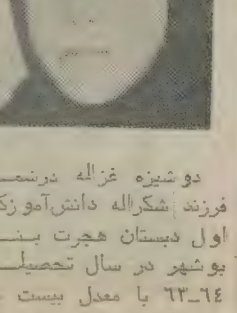 دوشیزه غزاله درنعمـ
فرزند شکراله دانش‌آموزکـ
اول دبستان هجرت بنـ
بوشهر در سال تحصیلـ
۶۳ـ۶٤ با معدل بیست